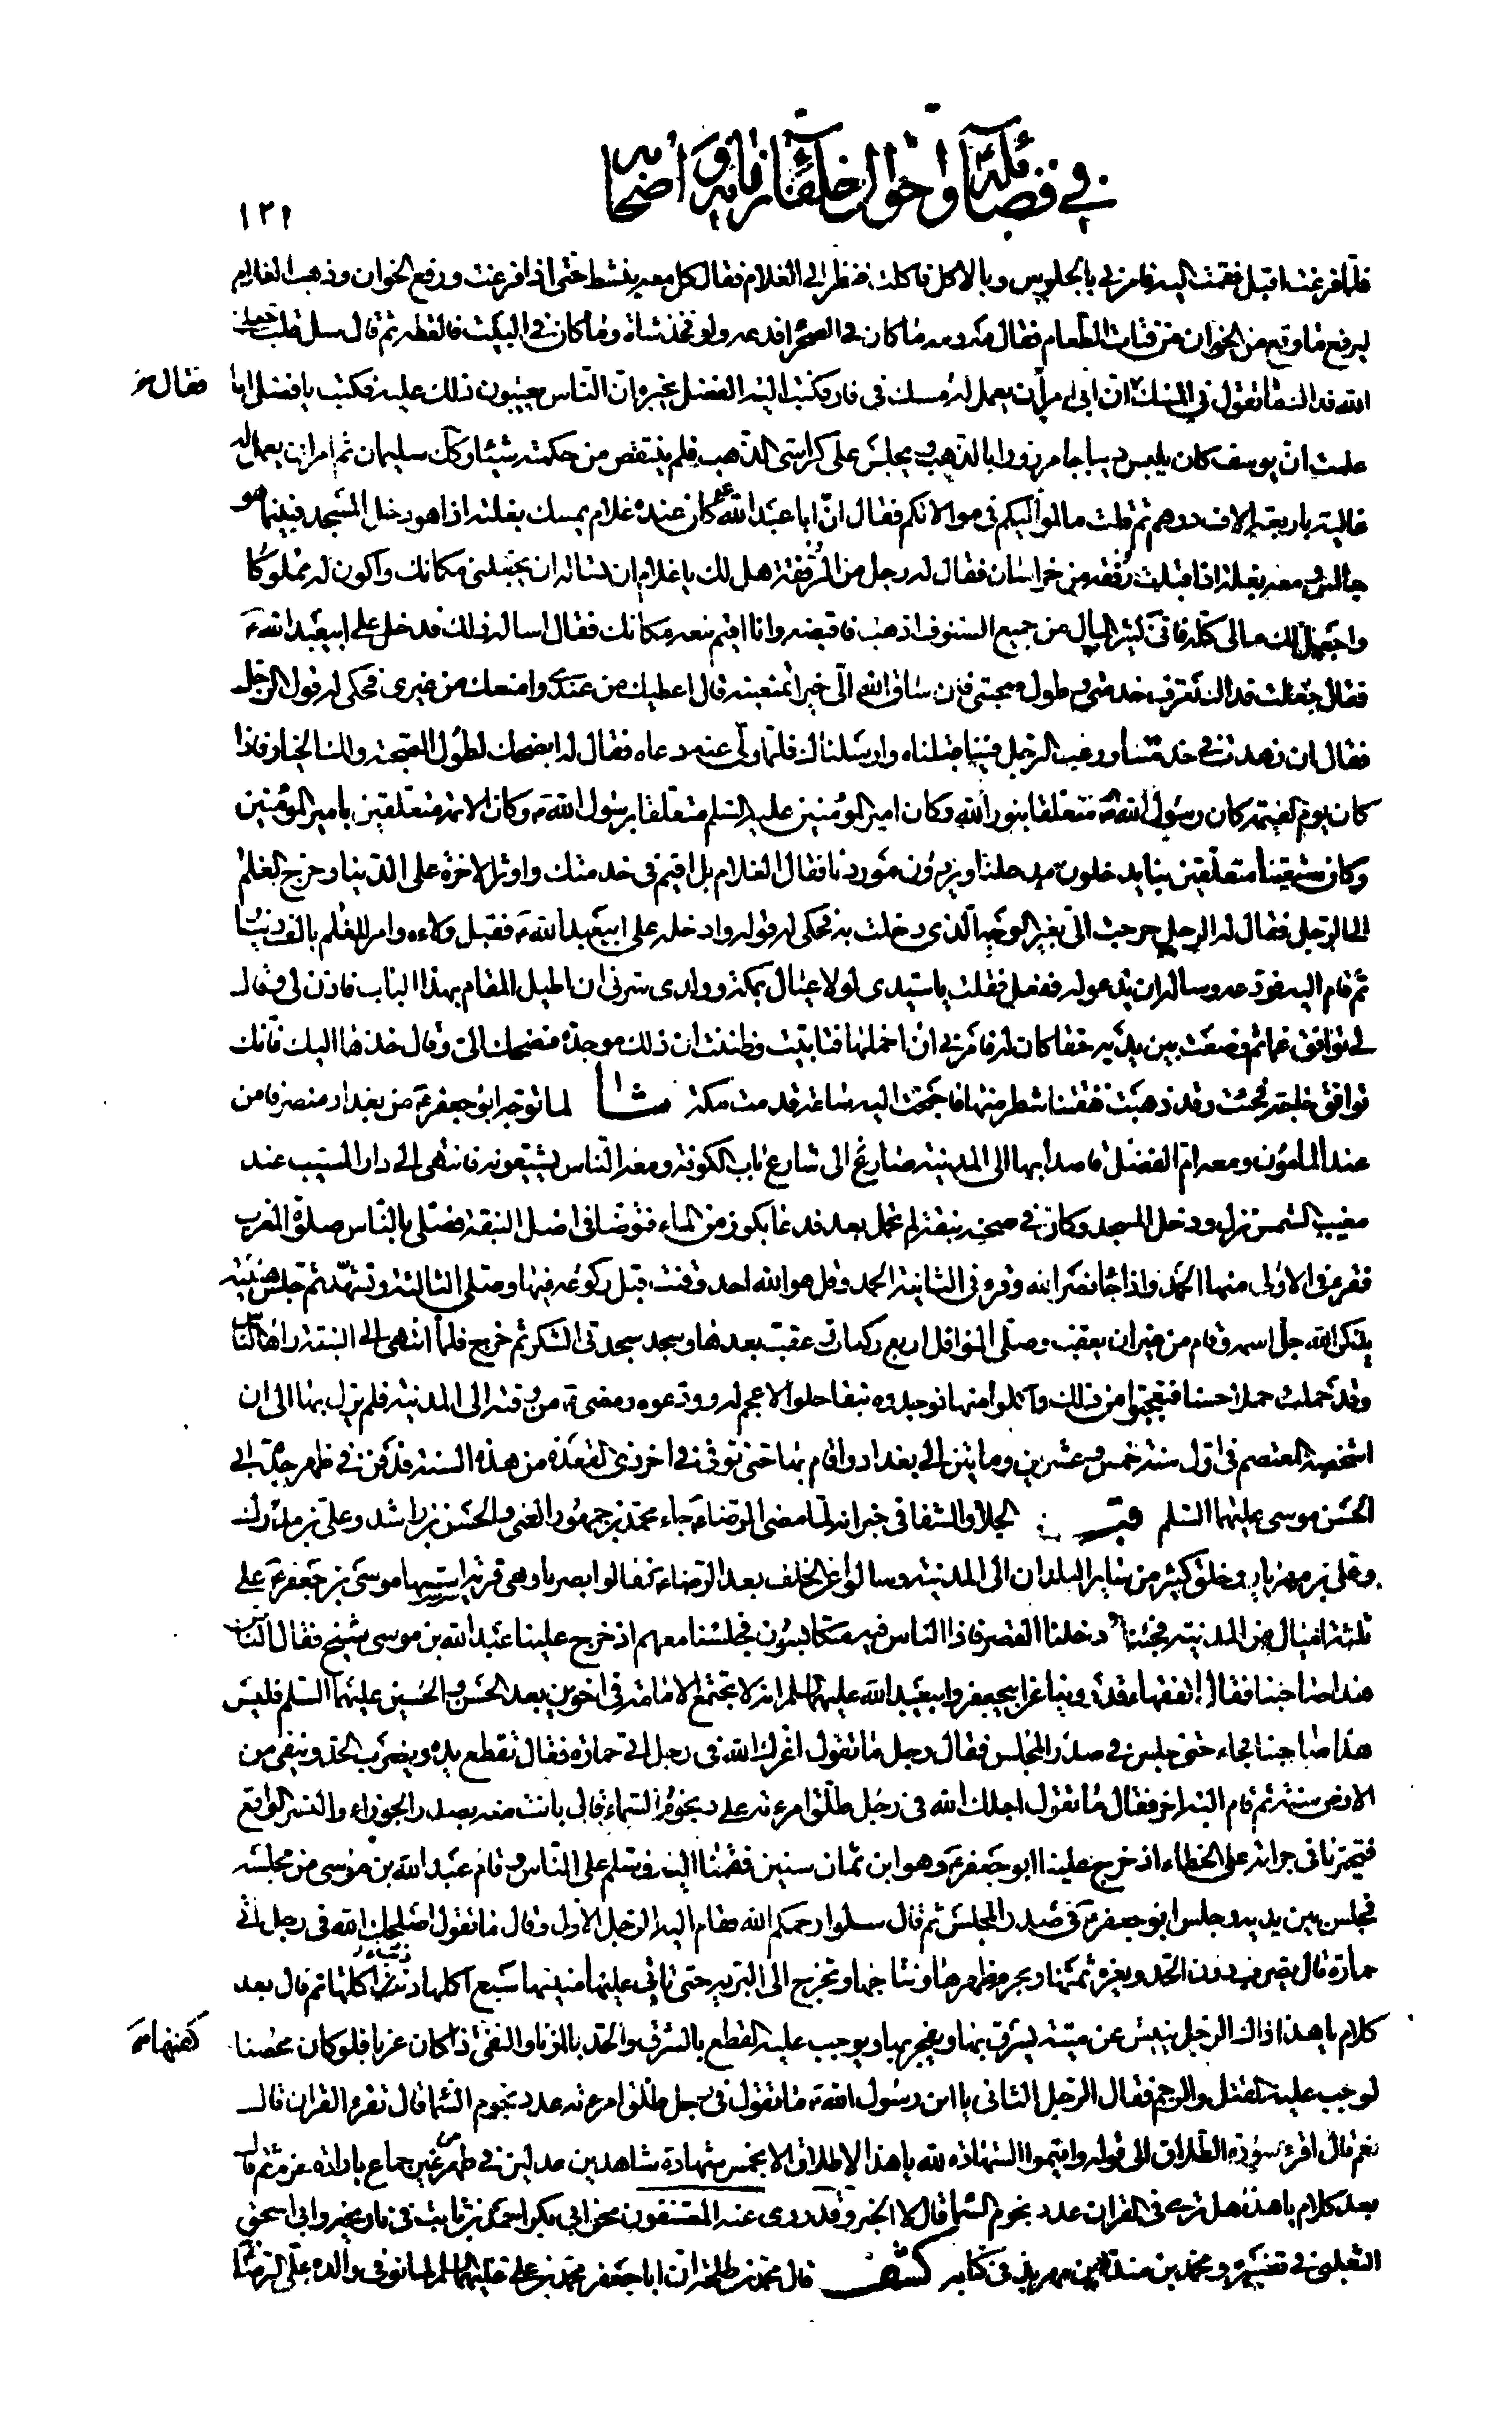 في فضائله واحوال خلفاء زمانه واصحابه
١٢٩
فلما فرغت اقبل فقمت اليه فامرني بالجلوس وبالاكل فاكلت فنظر الى الغلام فقال كل معه ينشط حتى اذا فرغت ورفع الخوان وذهب الغلام
ليرفع ما وقع من الخوان من فتات الطعام فقال مه ومه ما كان في الصحراء فدعه ولو فخذ شاة وما كان في البيت فالقطه ثم قال سل قلت جعلني
الله فداك ما تقول في المسك فقال ان ابي امر ان يعمل له مسك في فارة فكتب اليه الفضل يخبره ان الناس يعيبون ذلك عليه فكتب يا فضل اما
علمت ان يوسف كان يلبس ديباجا مزرورا بالذهب ويجلس على كراسي الذهب فلم ينتقص من حكمته شيئا وكذلك سليمان ثم امر ان يعمل له
غالية باربعة الاف درهم ثم قلت ما لمواليكم في موالاتكم فقال ان ابا عبد الله ع كان عنده غلام يمسك بغلته اذا هو دخل المسجد فبينما هو
جالس ومعه بغلة اذ اقبلت رفقة من خراسان فقال له رجل من الرفقة هل لك يا غلام ان تسأله ان يجعلني مكانك واكون له مملوكا
واجعل لك مالي كله فاني كثير المال من جميع الصنوف اذهب فاقبضه وانا اقيم معه مكانك فقال اساله ذلك فدخل على ابيعبد الله ع
فقال جعلت فداك تعرف خدمتي وطول صحبتي فان ساق الله الي خيرا تمنعنيه قال اعطيك من عندي وامنعك من غيري فحكى له قول الرجل
فقال ان زهدت في خدمتنا ورغب الرجل فينا قبلناه وارسلناك فلما ولى عنه دعاه فقال له انصحك لطول الصحبة ولك الخيار فاذا
كان يوم القيمة كان رسول الله ص متعلقا بنور الله وكان امير المؤمنين عليه السلم متعلقا برسول الله ص وكان الائمة متعلقين بامير المؤمنين
وكان شيعتنا متعلقين بنا يدخلون مدخلنا ويردون موردنا فقال الغلام بل اقيم في خدمتك واوثر الاخرة على الدنيا وخرج الغلام
الى الرجل فقال له الرجل خرجت الي بغير الوجه الذي دخلت به فحكى له قوله وادخله على ابيعبد الله ع فقبل ولاءه وامر للغلام بالف دينار
ثم قام اليه فودعه وساله ان يدعو له ففعل فقلت يا سيدي لولا عيال بمكة وولدي سرني ان اطيل المقام بهذا الباب فاذن لي وقال
لي توافق غما ثم وضعت بين يديه حقا كان له فامرني ان احملها فتابيت وظننت ان ذلك موجدة فضحك الي وقال خذها اليك فانك
توافق حاجة فجئت وقد ذهبت نفقتنا شطر منها فاحتجت اليه ساعة قدمت مكة شا لما توجه ابو جعفر ع من بغداد منصرفا من
عند المامون ومعه ام الفضل قاصدا بها الى المدينة صار ع الى شارع باب الكوفة ومعه الناس يشيعونه فانتهى الى دار المسيب عند
مغيب الشمس نزل ودخل المسجد وكان في صحنه نبقة لم تحمل بعد فدعا بكوز من الماء فتوضا في اصل النبقة فصلى بالناس صلوة المغرب
فقرء في الاولى منها الحمد واذا جاء نصر الله وقرء في الثانية الحمد وقل هو الله احد وقنت قبل ركوعه فيها وصلى الثالثة وتشهد ثم جلس هنيئة
يذكر الله جل اسمه وقام من غير ان يعقب وصلى النوافل اربع ركعات وعقب بعدها وسجد سجدتي الشكر ثم خرج فلما انتهى الى النبقة راها الناس
وقد حملت حملا حسنا فتعجبوا من ذلك واكلوا منها فوجدوه نبقا حلوا لا عجم له وودعوه ومضى ع من وقته الى المدينة فلم يزل بها الى ان
اشخصه المعتصم في اول سنة خمس وعشرين وماتين الى بغداد واقام بها حتى توفي في اخر ذي القعدة من هذه السنة فدفن في ظهر جده ابي
الحسن موسى عليهما السلم قب الجلاء والشفا في خبر انه لما مضى الرضاء ع جاء محمد بن جمهور القمي والحسن بن راشد وعلي بن مدرك
وعلي بن مهزيار وخلق كثير من ساير البلدان الى المدينة وسالوا عن الخلف بعد الرضاء ع فقالوا بصريا وهي قرية اسسها موسى بن جعفر ع على
ثلثة اميال من المدينة فجئنا ودخلنا القصر فاذا الناس فيه متكابسون فجلسنا معهم اذ خرج علينا عبد الله بن موسى شيخ فقال الناس
هذا صاحبنا فقال الفقهاء قد روينا عن ابيجعفر وابيعبد الله عليهما السلم انه لا تجتمع الامامة في اخوين بعد الحسن والحسين عليهما السلم فليس
هذا صاحبنا فجاء حتى جلس في صدر المجلس فقال رجل ما تقول اعزك الله في رجل اتى حمارة فقال تقطع يده ويضرب الحد وينفى من
الارض سنة ثم قام اليه اخر فقال ما تقول اجلك الله في رجل طلق امرءته على عدد نجوم السماء قال بانت منه بصدر الجوزاء والنسر الواقع
فتحيرنا في جراته على الخطاء اذ خرج علينا ابو جعفر ع وهو ابن ثمان سنين فقمنا اليه فسلم على الناس وقام عبد الله بن موسى من مجلسه
فجلس بين يديه وجلس ابو جعفر ع في صدر المجلس ثم قال سلوا رحمكم الله فقام اليه الرجل الاول وقال ما تقول اصلحك الله في رجل اتى
حمارة قال يضرب دون الحد ويغرم ثمنها ويحرم ظهرها ونتاجها وتخرج الى البرية حتى تاتي عليها منيتها سبع اكلها ذئب اكلها ثم قال بعد
كلام يا هذا ذاك الرجل ينبش عن ميتة يسرق كفنها ويفجر بها ويوجب عليه القطع بالسرق والحد بالزنا والنفي اذا كان عزبا فلو كان محصنا
لوجب عليه القتل والرجم فقال الرجل الثاني يا ابن رسول الله ص ما تقول في رجل طلق امرءته عدد نجوم السماء قال تقرء القران قال
نعم قال اقرء سورة الطلاق الى قوله واقيموا الشهادة لله يا هذا لا طلاق الا بخمس شهادة شاهدين عدلين في طهر من غير جماع بارادة عزم ثم قال
بعد كلام يا هذا هل ترى في القران عدد نجوم السماء قال لا الخبر وقد روى عنه المصنفون نحو ابي بكر احمد بن ثابت في تاريخه وابي اسحق
الثعلبي في تفسيره ومحمد بن مندة بن مهربذ في كتابه كشف قال محمد بن طلحة ان ابا جعفر محمد بن علي عليهما السلم لما توفي والده علي الرضا
فقال
كفنها